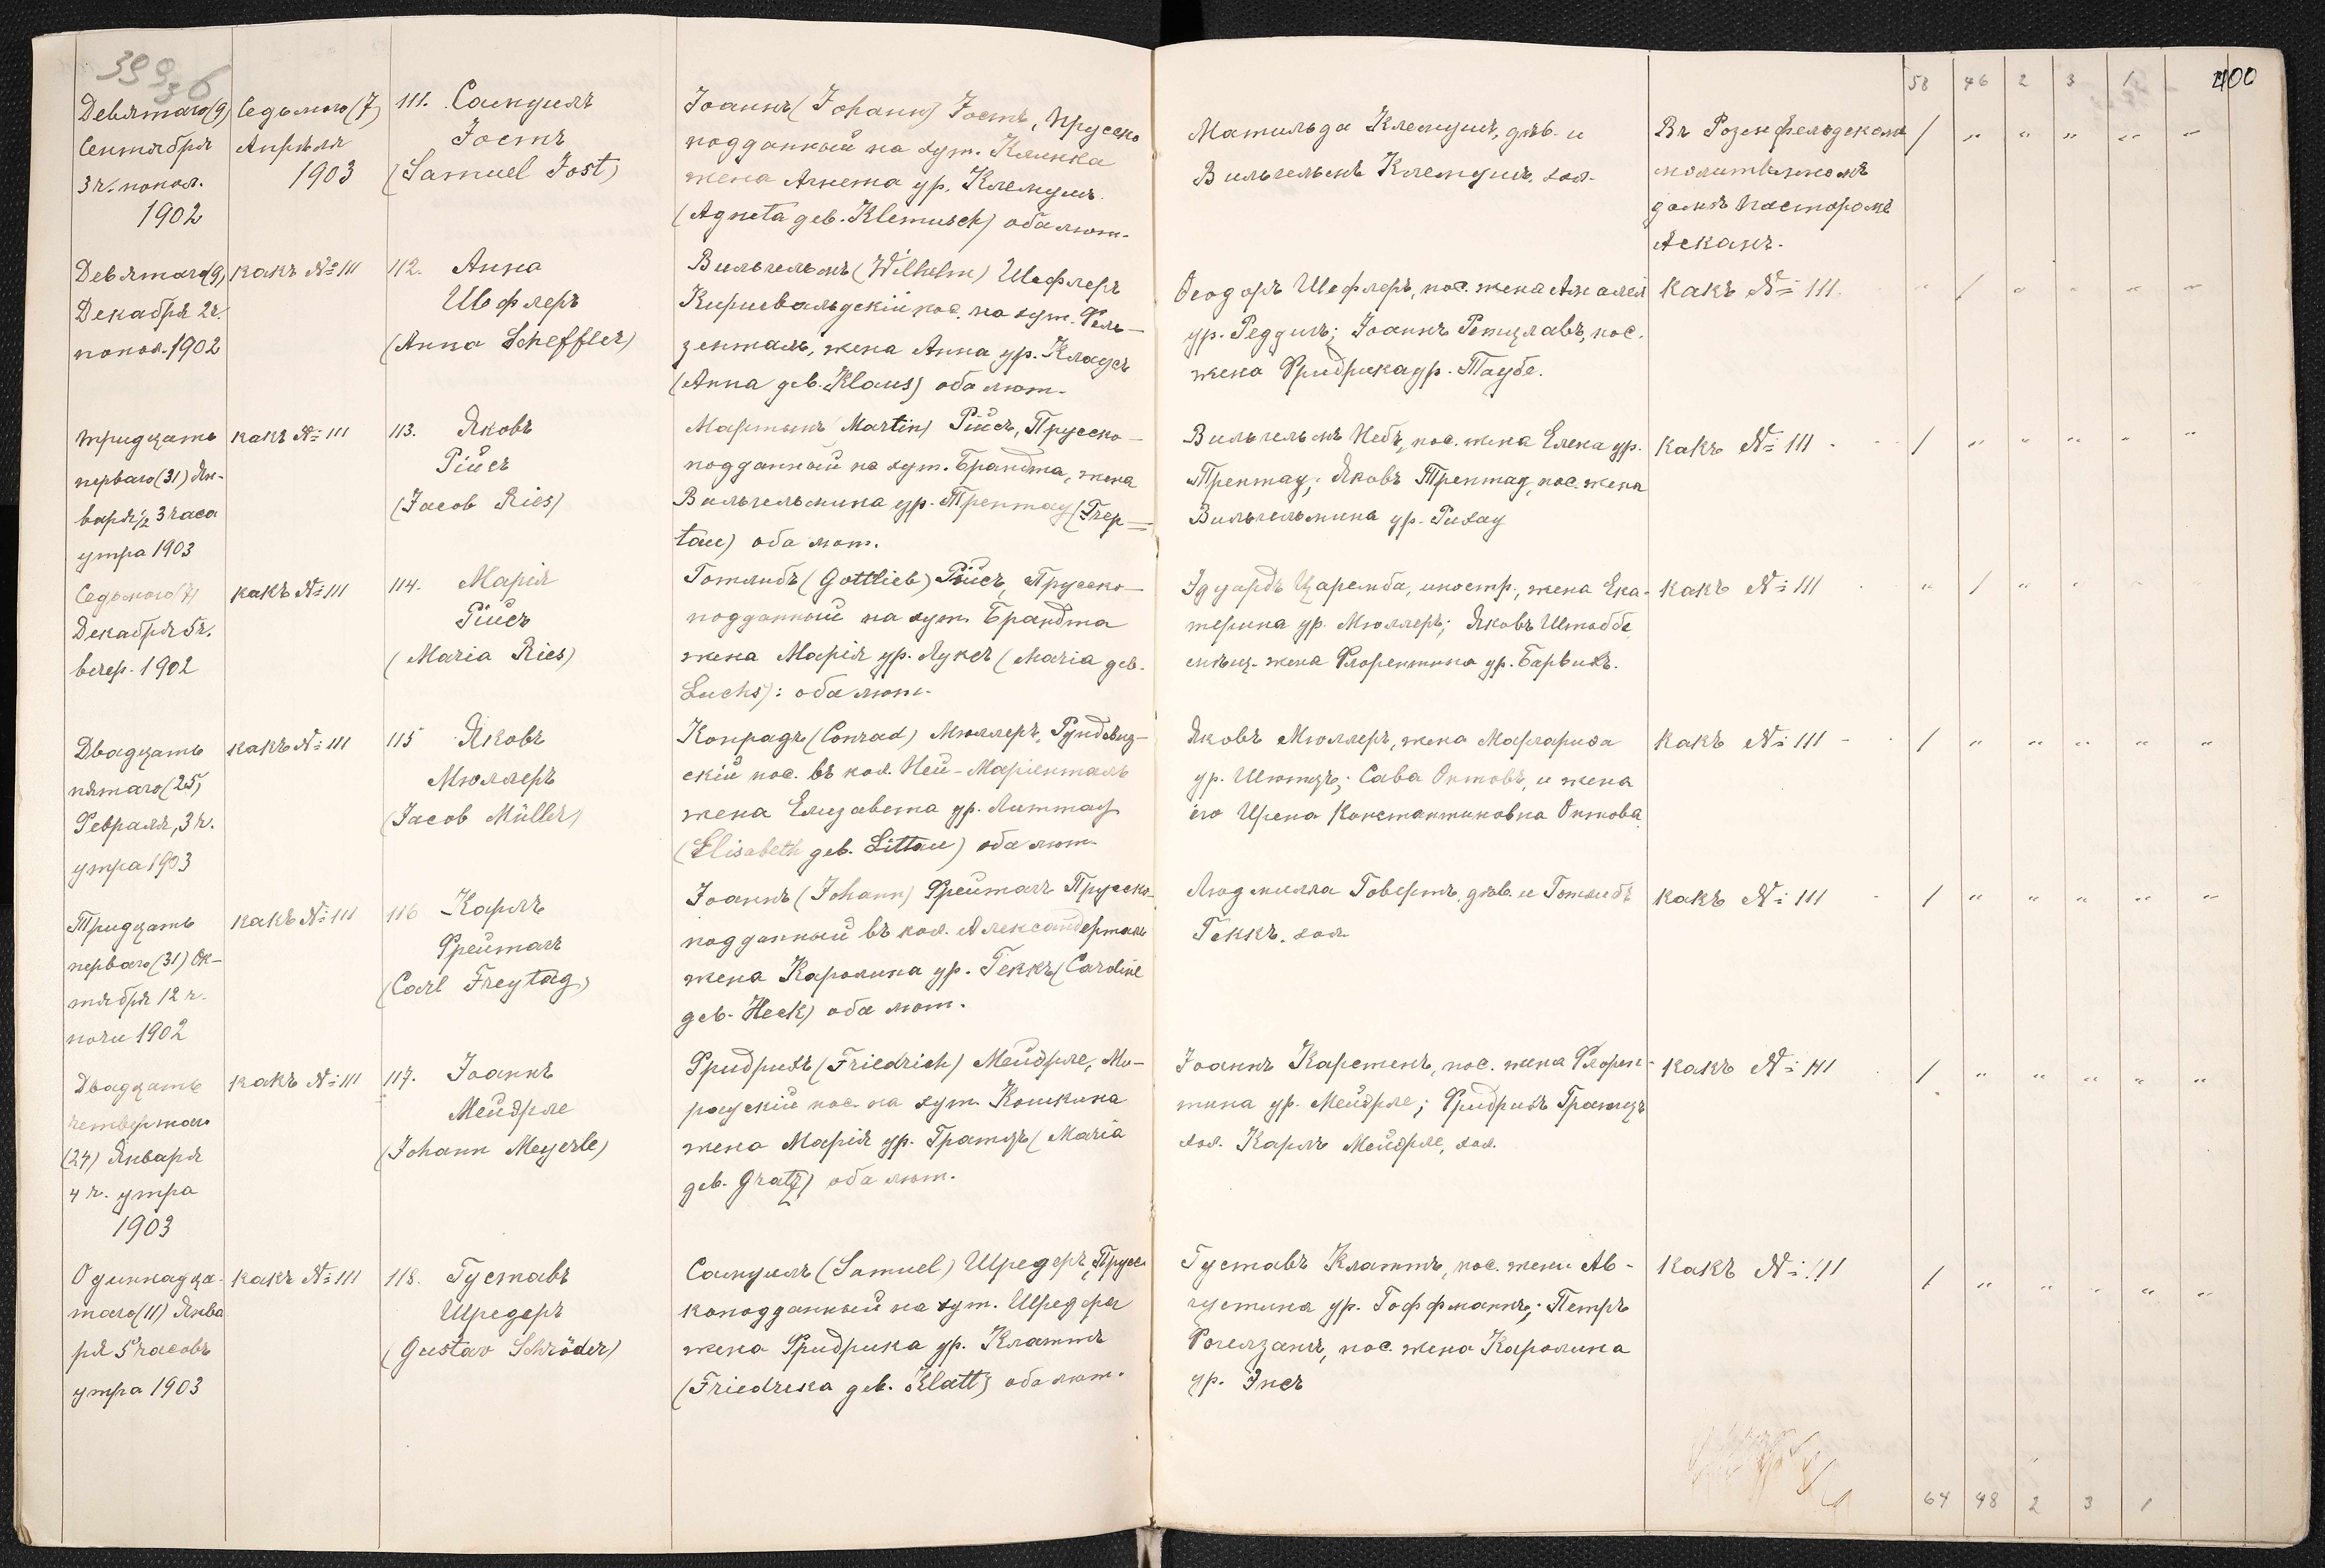 399 зб
58 46 2 3 1 400
Девятаго(9)
Сентября
3 ч. попол.
1902
Седьмого(7)
Апрѣля
1903
111. Самуилъ
Іостъ
(Samuel Jost)
Іоаннъ (Johann) Іостъ, Прусско
подданный на хут. Клинка
жена Агнета ур. Клемушъ
(Agneta geb. Klemusch) оба лют.
Матильда Клемушъ, дѣв. и
Вильгельмъ Клемушъ, хол.
Въ Розенфельдскомъ
молитвенномъ
домѣ Пасторомъ
Асканъ.
/ „ „ „ „ „
Девятаго(9)
Декабря 2 ч.
попол. 1902
какъ № 111
112. Анна
Шефлеръ
(Anna Scheffler)
Вильгельмъ (Wilhelm) Шефлеръ
Киршвальдскій пос. на хут. Фель-
зенталь, жена Анна ур. Клаусъ
(Anna geb. Klaus) оба лют.
Ѳеодоръ Шефлеръ, пос. жена Амалія
ур. Реддигъ; Іоаннъ Ретцлавъ, пос.
жена Фридрика ур. Таубе.
какъ № 111.
„ / „ „ „ „
Тридцать
перваго(31) Ян-
варя ½ 3 часа
утра 1903
какъ № 111
113. Яковъ
Рійсъ
(Jacob Ries)
Мартынъ (Martin) Рійсъ, Прусско-
подданный на хут. Брандта, жена
Вильгельмина ур. Трептау (Trep-
tau) оба лют.
Вильгельмъ Небъ, пос. жена Елена ур.
Трептау; Яковъ Трептау, пос. жена
Вильгельмина ур. Рихау
какъ № 111
/ „ „ „ „ „
Седьмого(7)
Декабря 5 ч.
вечер. 1902
какъ № 111
114. Марія
Рійсъ
(Maria Ries)
Готлибъ (Gottlieb) Рійсъ, Прусско-
подданный на хут. Брандта
жена Марія ур. Луксъ (Maria geb.
Luchs): оба лют.
Эдуардъ Царемба, иностр., жена Ека-
терина ур. Мюллеръ; Яковъ Штоббе
мѣщ. жена Флорентина ур. Барвихъ.
какъ № 111
„ / „ „ „ „
Двадцать
пятаго(25)
Февраля, 3 ч.
утра 1903
какъ № 111
115 Яковъ
Мюллеръ
(Jacob Müller)
Конрадъ (Conrad) Мюллеръ, Рундевиз-
скій пос. въ кол. Ней-Маріенталь
жена Елизавета ур. Литтау
(Elisabeth geb. Littau) оба лют.
Яковъ Мюллеръ, жена Маргариѳа
ур. Шютцъ; Сава Онтовъ, и жена
его Ирена Константиновна Онтова
какъ № 111
/ „ „ „ „ „
Тридцать
перваго(31) Ок-
тября 12 ч.
ночи 1902
какъ № 111
116 Карлъ
Фрейтагъ
(Carl Freytag)
Іоаннъ (Johann) Фрейтагъ Прусско-
подданный въ кол. Александерталь
жена Каролина ур. Геккъ (Caroline
geb. Heck) оба лют.
Людмилла Говертъ, дѣв. и Готлибъ
Геккъ, хол.
какъ № 111
/ „ „ „ „ „
Двадцать
четвертаго
(24) Января
4 ч. утра
1903
какъ № 111
117. Іоаннъ
Мейэрле
(Johann Meyerle)
Фридрихъ (Friedrich) Мейэрле, Мо-
раускій пос. на хут. Кошкина
жена Марія ур. Гратцъ (Maria
geb. Gratz) оба лют.
Іоаннъ Карстенъ, пос. жена Флорен-
тина ур. Мейэрле; Фридрихъ Гратцъ
хол. Карлъ Мейэрле, хол.
какъ № 111
/ „ „ „ „ „
Одиннадца-
таго(11) Янва
ря 5 часовъ
утра 1903
какъ № 111
118. Густавъ
Шредеръ
(Gustav Schröder)
Самуилъ (Samuel) Шредеръ, Прусс-
коподданный на хут. Шредера
жена Фридрика ур. Клаттъ
(Friedrika geb. Klatt) оба лют.
Густавъ Клаттъ, пос. жена Ав-
густина ур. Гоффманнъ; Петръ
Рогелзанъ, пос. жена Каролина
ур. Энсъ
какъ № 111
/ „ „ „ „ „
64 48 2 3 1